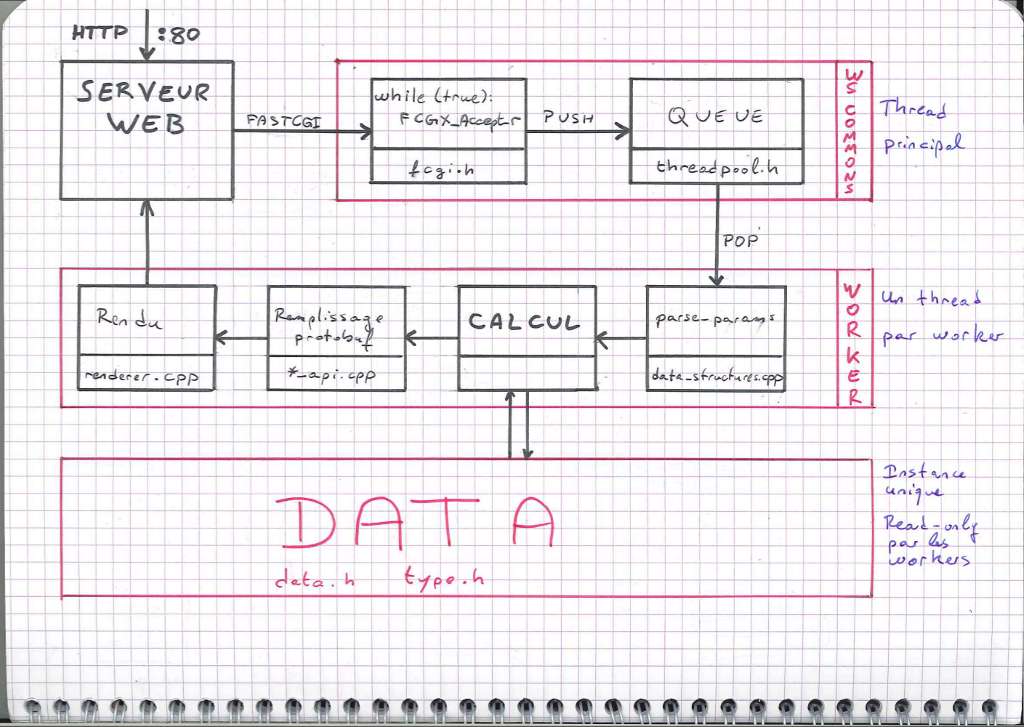 HTTP :80
SERVEUR
WEB
FASTCGI
while (true):
FCGX_Accept_r
fcgi.h
PUSH
QUEUE
threadpool.h
WS COMMONS
Thread
principal
POP
Rendu
renderer.cpp
Remplissage
protobuf
*_api.cpp
CALCUL
parse-params
data_structures.cpp
WORKER
Un thread
par worker
DATA
data.h type.h
Instance
unique
Read-only
par les
workers